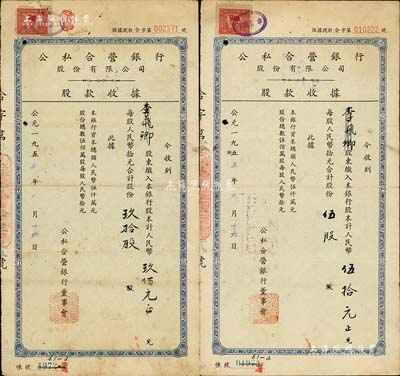 股據號數合字第 002371 號
公私合營銀行
股份有限公司
股款收據
今收到
李飛卿 股東繳入本銀行股本計人民幣 玖佰元正
每股人民幣拾元合計股份 玖拾股
此據
本銀行資本總額人民幣伍仟萬元
股份總數伍佰萬股每股人民幣拾元
公私合營銀行董事會
公元一九五 年 月 日
帳號
股據號數合字第 010222 號
公私合營銀行
股份有限公司
股款收據
今收到
李飛卿 股東繳入本銀行股本計人民幣 伍拾元正
每股人民幣拾元合計股份 伍股
此據
本銀行資本總額人民幣伍仟萬元
股份總數伍佰萬股每股人民幣拾元
公私合營銀行董事會
公元一九五 年 月 日
帳號